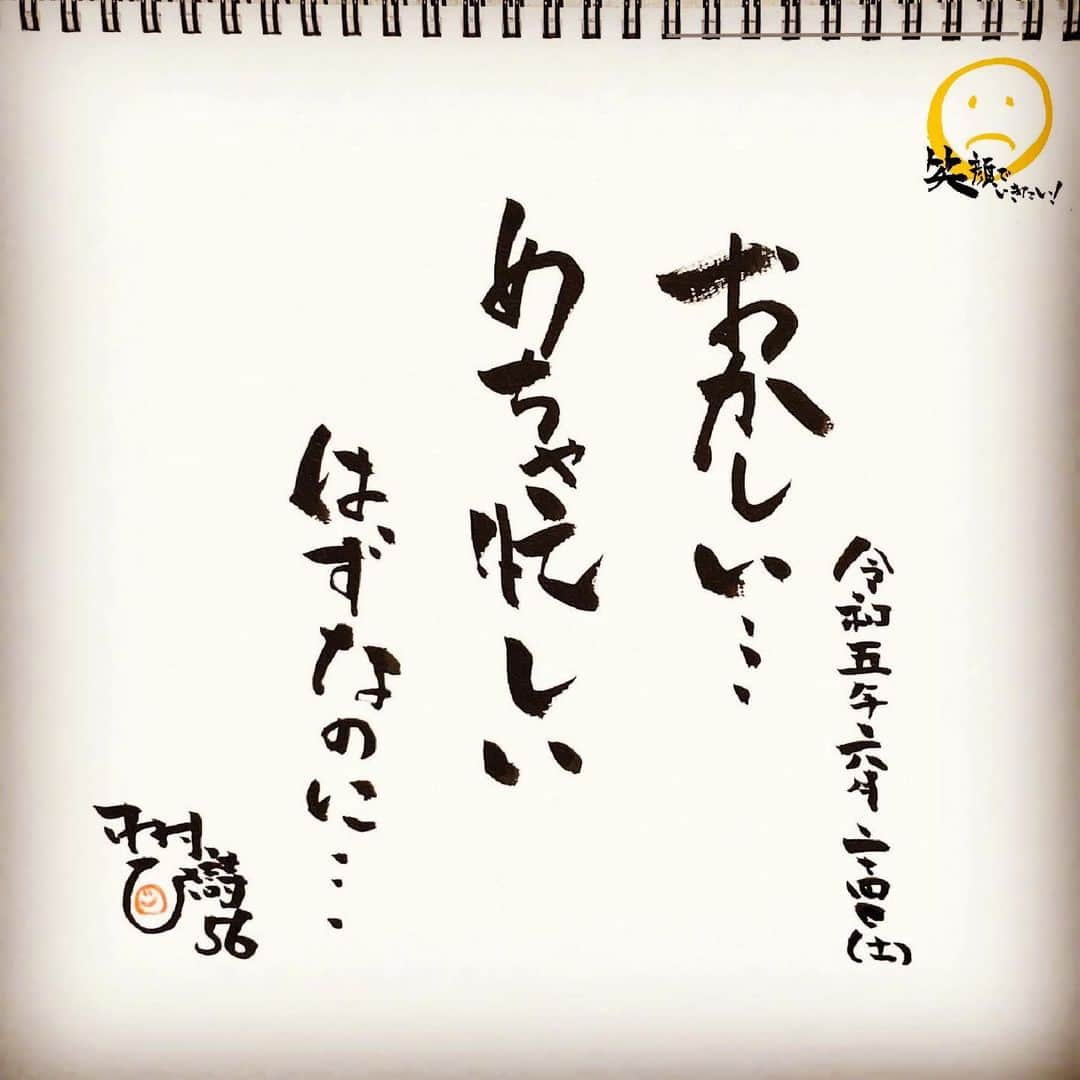 笑顔で
いきたい!
令和五年六月二十四日(土)
おかしい…
めちゃ忙しい
はずなのに…
56